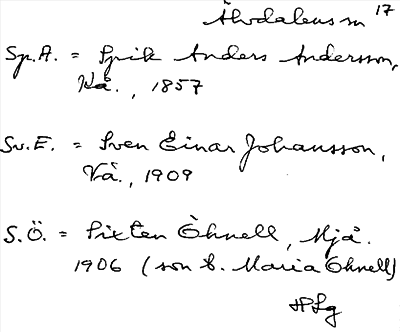 Älvdalens sn 17
Sp.A. = Spik Anders Andersson,
Kå., 1857
Sv.E. = Sven Einar Johansson,
Vå., 1909
S.Ö. = Sixten Öhnell, Mjå.
1906 (son t. Maria Öhnell)
HSg